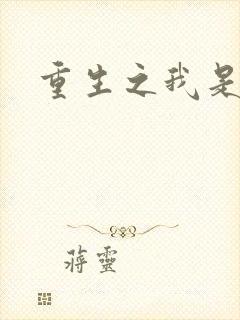 重生之我是
蒋靈